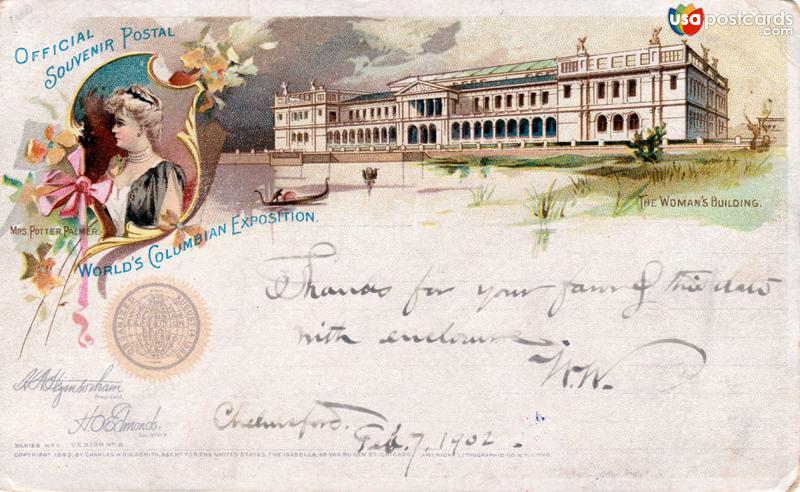 usapostcards
.com
OFFICIAL
SOUVENIR POSTAL
MRS. POTTER PALMER.
WORLD'S COLUMBIAN EXPOSITION.
THE WOMAN'S BUILDING.
Thanks for your favor of this date
with enclosure.
W.W.
Chelmsford.
Feb. 7. 1902.
President.
H O Edmonds.
Secretary.
SERIES No 1. DESIGN No 8.
COPYRIGHT. 1893, BY CHARLES W. GOLDSMITH, AGENT FOR THE UNITED STATES, THE ISABELLA, 48 VAN BUREN ST. CHICAGO. AMERICAN LITHOGRAPHIC CO. N.Y. LITHO.